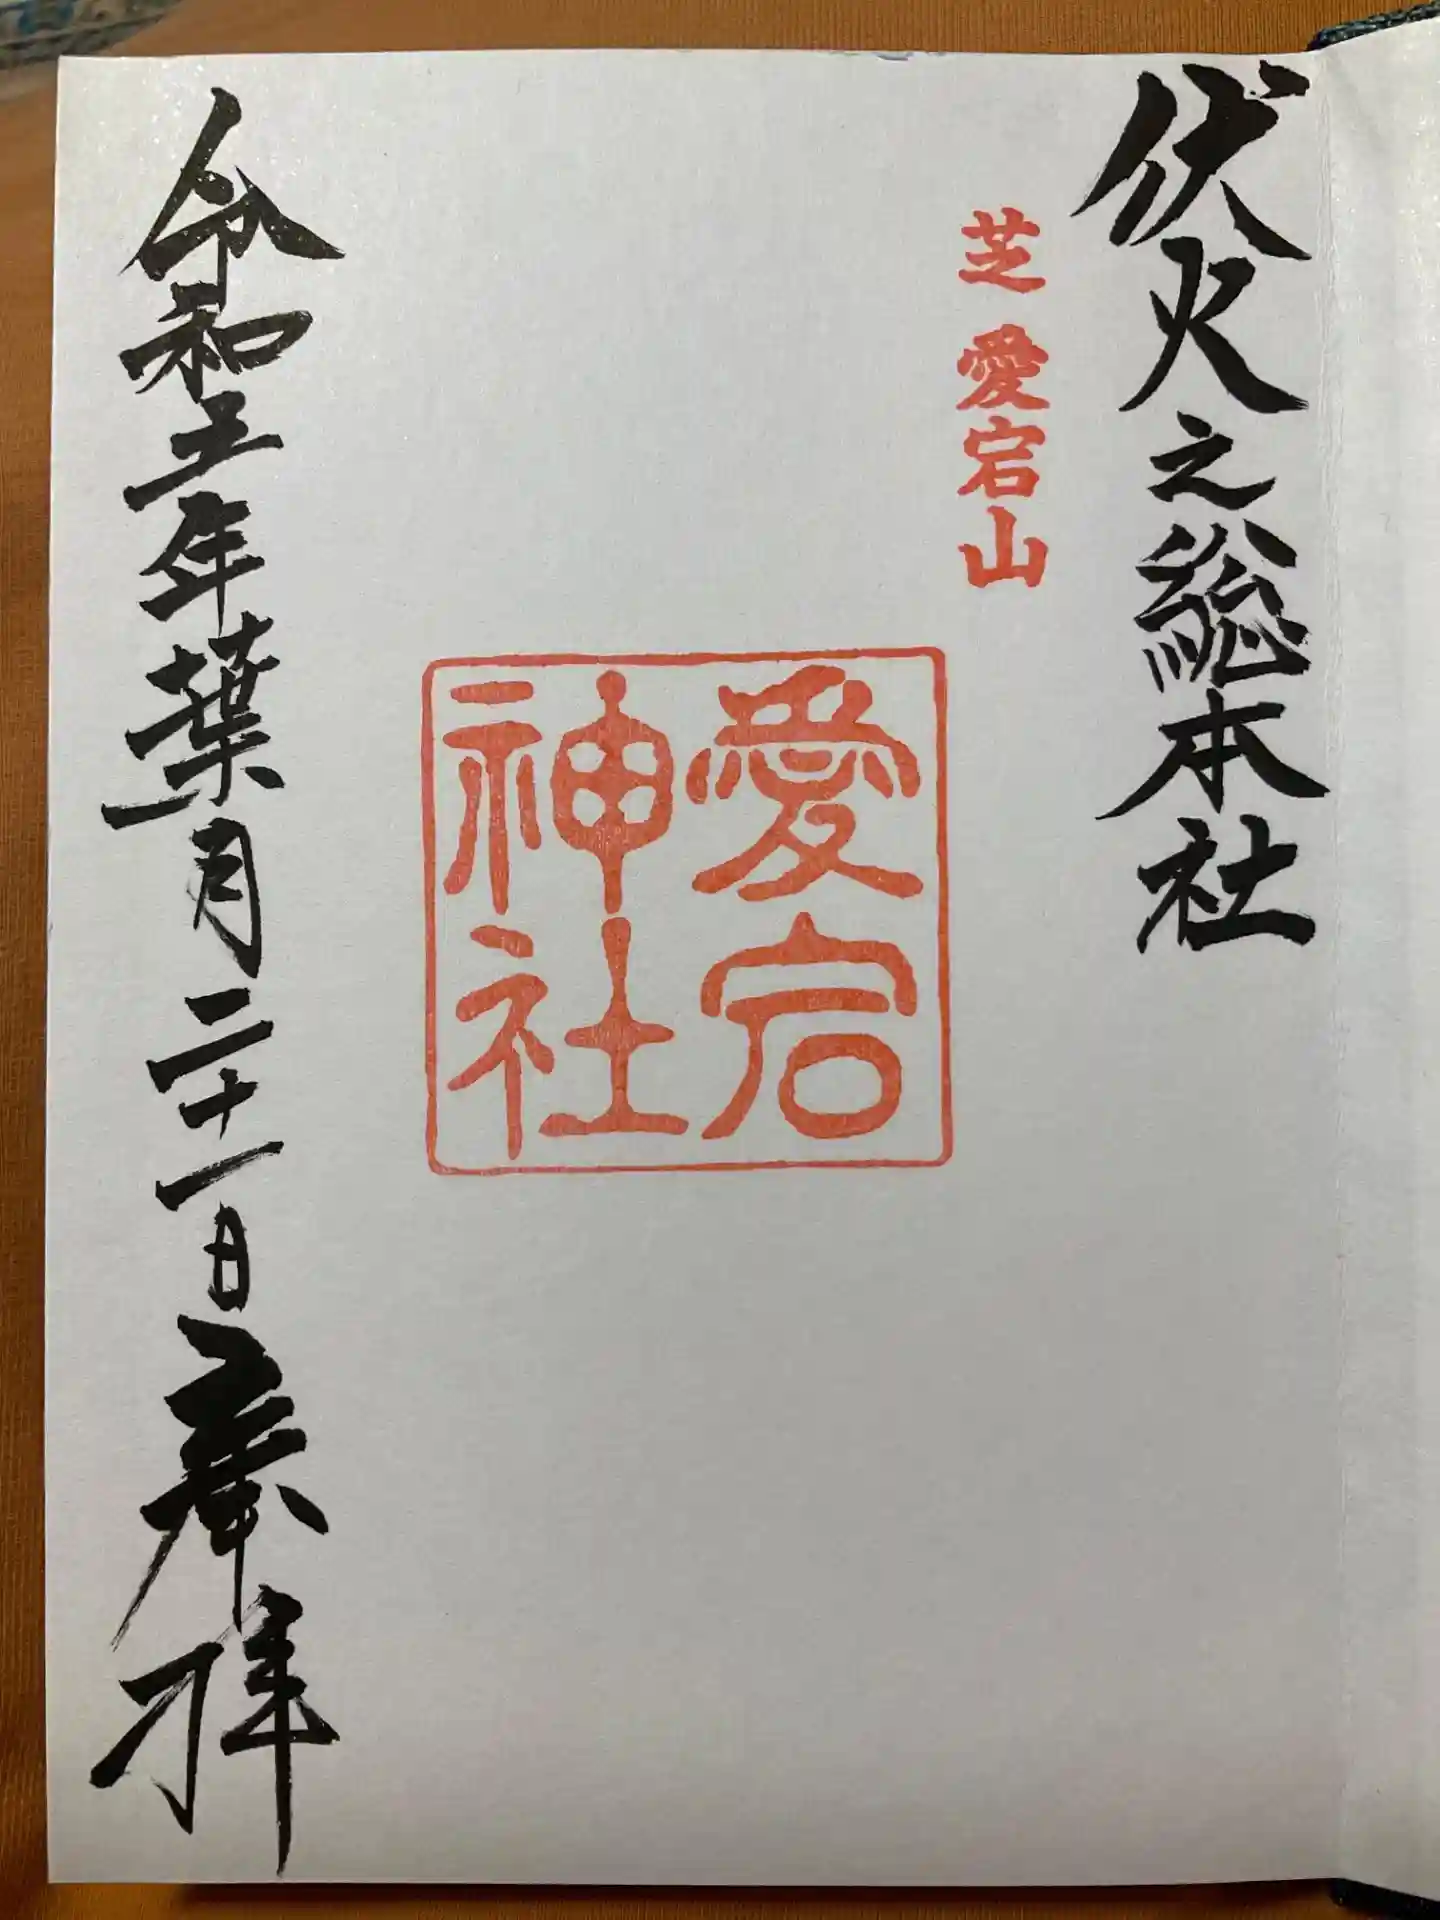 伏火之総本社
芝 愛宕山
愛宕
神社
令和五年葉月二十一日奉拝